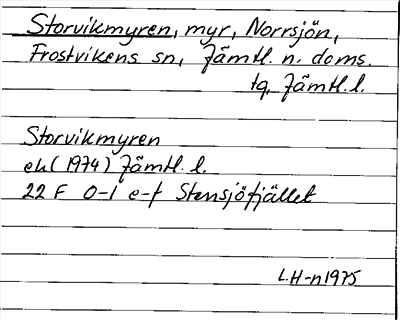 Storvikmyren, myr, Norrsjön,
Frostvikens sn, Jämtl. n. doms.
tg, Jämtl. l.
Storvikmyren
ek (1974) Jämtl. l.
22 F 0-1 e-f Stensjöfjället
L.H-n 1975